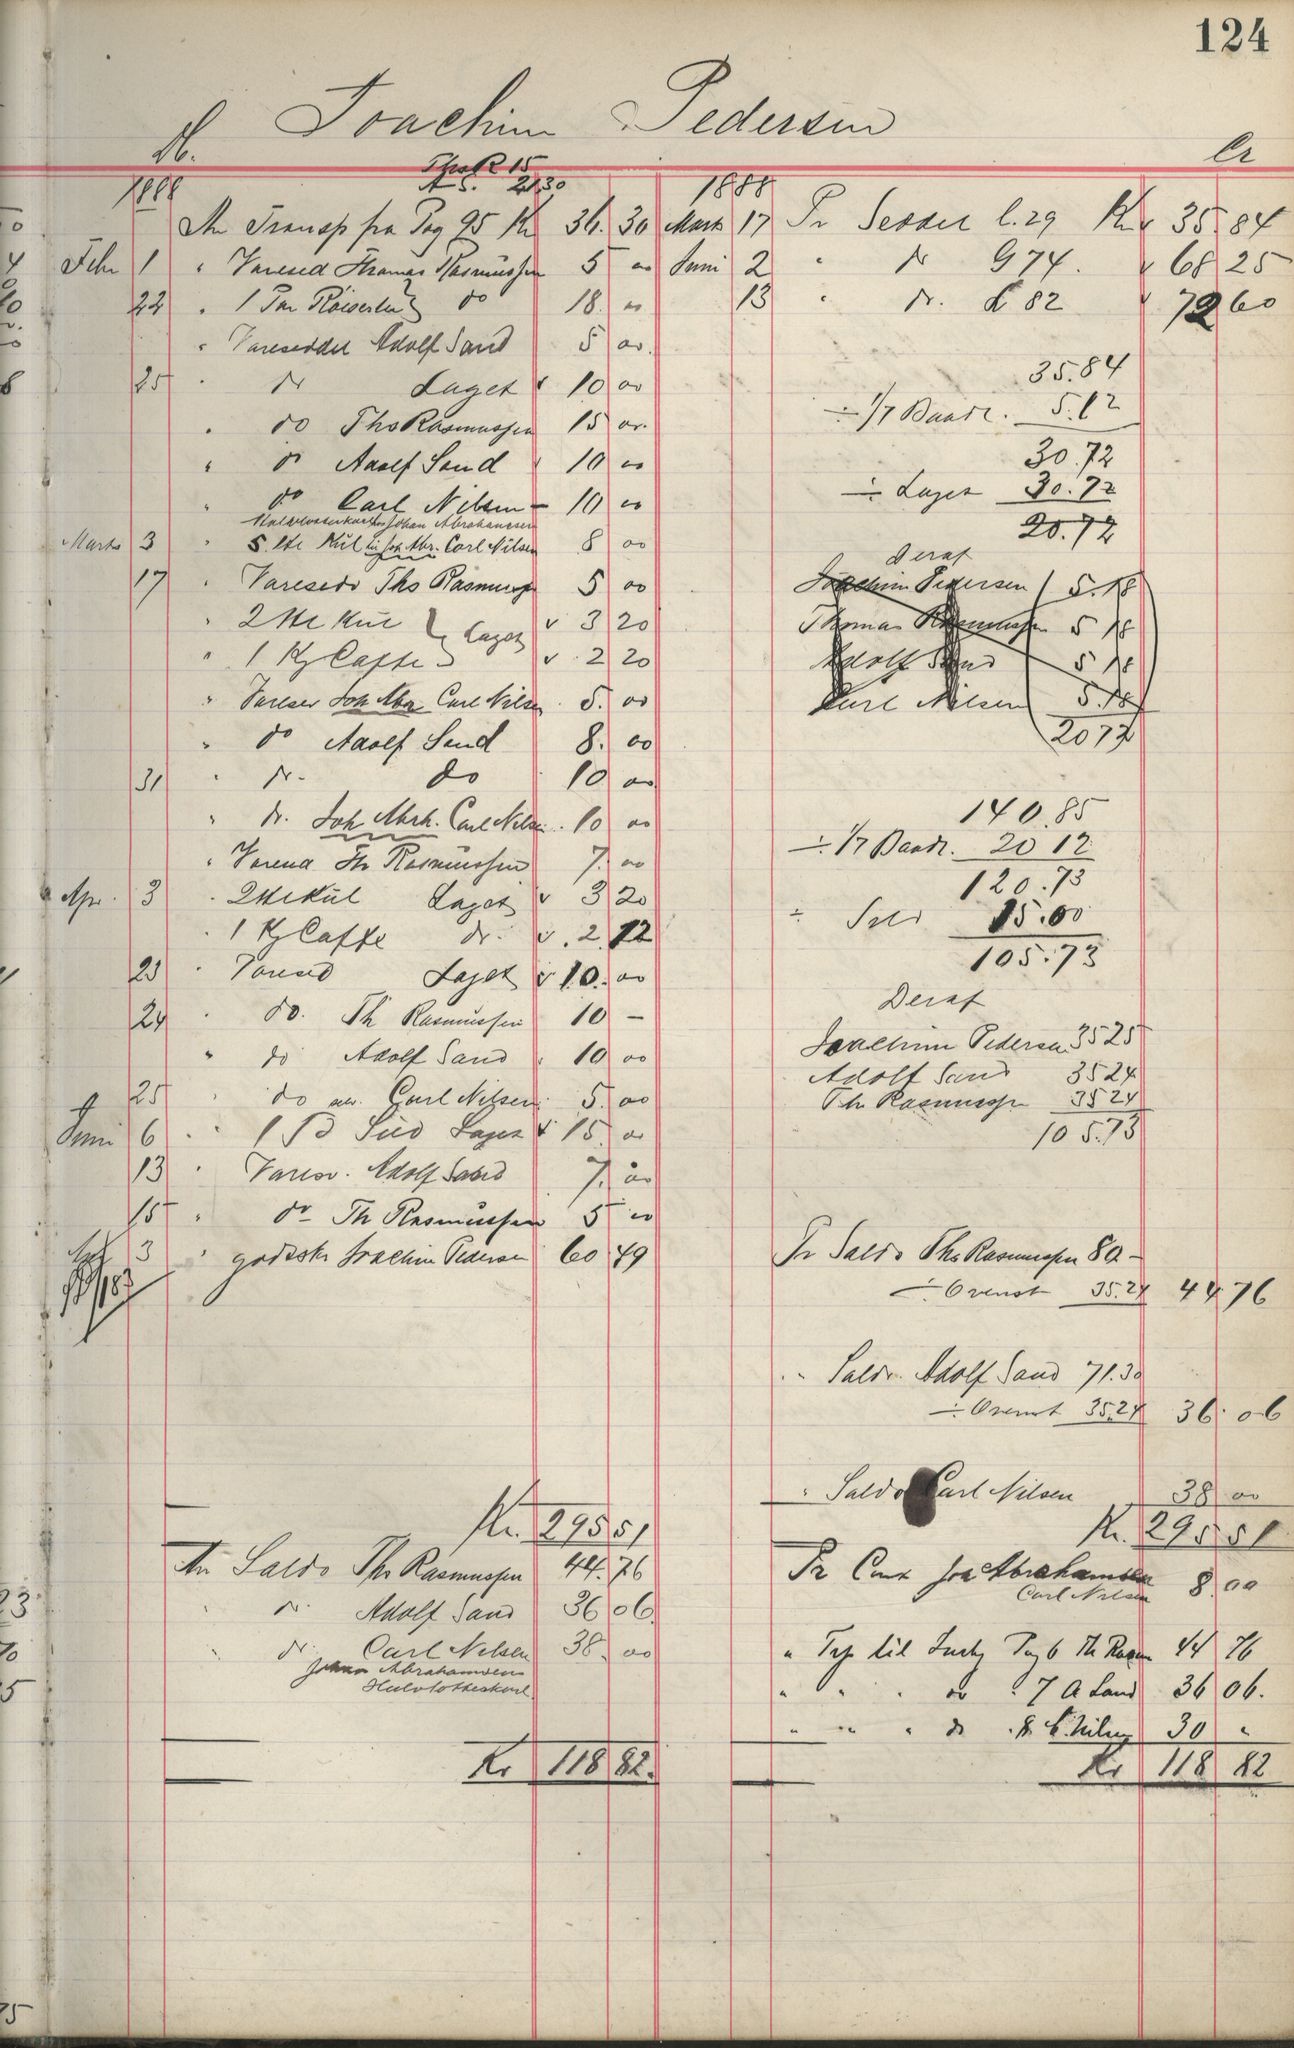 124
Joachim Pedersen
Dt.
Cr
Ths R 15
A S. 21.30
1888
An Transp fra Pag 95 Kr 36.30
Febr 1 " Varesed Thomas Rasmussen 5 00
22 " 1 Par do 18. 00
" Vareseddel Adolf Sand 5 00.
25 " do Laget 10 00
" do Ths Rasmussen 15 00.
" do Adolf Sand 10 00
" do Carl Nilsen 10 00
Johan Abrahamsen
Marts 3 " 5 Hk Kul Joh Abr. Carl Nilsen 8 00
17 " Varesed Ths Rasmussen 5 00
" 2 Hk Kul } Laget 3 20
" 1 Kg Caffe 2 20
" Varesed Joh Abr Carl Nilsen 5. 00
" do Adolf Sand 8. 00
31 " do do 10 00
" do. Joh Abrh. Carl Nilsen 10 00
" Th Rasmussen 7. 00
Apr. 3 " 2 Hk Kul Laget 3 20
" 1 Kg Caffe do 2.12
23 " Varesed Laget 10. 00
24 " do. Th Rasmussen 10 —
" do Adolf Sand 10 00
25 " do Carl Nilsen 5. 00
Juni 6 " 1 Sild Laget 15. 00
13 " Varesd. Adolf Sand 7. 00
15 " do Th Rasmussen 5 00
3 " godsskr Joachim Pedersen 60 49
Kr. 295 51
An Saldo Ths Rasmussen 44.76
" do. Adolf Sand 36 06.
" do. Carl Nilsen 38. 00
Johan Abrahamsen
Halvlotteskarl.
Kr 118 82.
1888
Marts 17 Pr Seddel C.29 Kr 35.84
Juni 2 " do G 74. 68 25
13 " do. L 82 72 60
35.84
÷ 1/7 Baadl. 5.12
30.72
÷ Laget
20.72
Deraf
Joachim Pedersen 5.18
Thomas Rasmussen 5 18
Adolf Sand 5 18
Carl Nilsen 5.18
20 72
140.85
÷ 1/7 Baadl. 20 12
120.73
÷ Sild 15.00
105.73
Deraf
Joachim Pedersen 35 25
Adolf Sand 35 24
Th Rasmussen 35 24
105.73
Pr Saldo Ths Rasmussen 80 —
÷ Ovenst 35.24 44 76
" Saldo Adolf Sand 71.30
÷ Ovenst 35.24 36.06
" Saldo Carl Nilsen 38 00
Kr. 295 51
Pr Joh Abrahamsen
Carl Nilsen 8.00
" Trp til Pag 6 Th Rasm 44 76
" " " do " 7 A Sand 36 06.
" " " do " 8 C. Nilsen 30 "
Kr 118 82